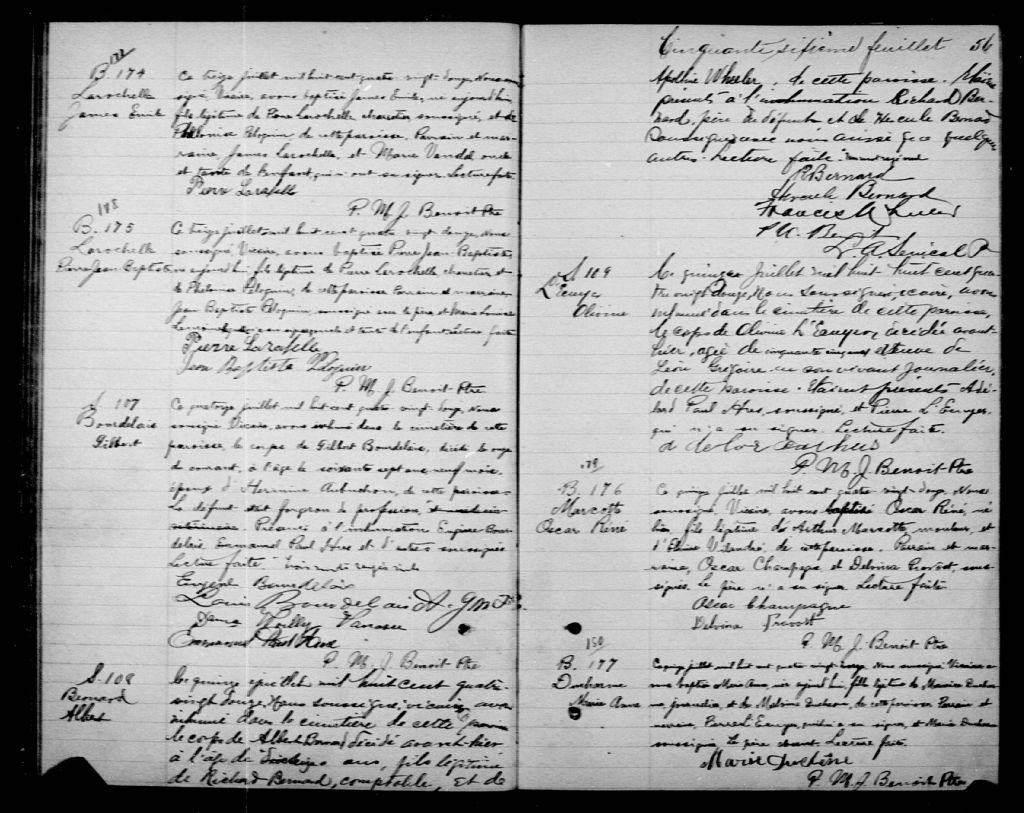 B. 174
Larochelle
James Emile
Ce treize juillet mil huit cent quatre vingt-douze, Nous sous
signé, Vicaire, avons baptisé James Emile, né aujourd'hui
fils légitime de Pierre Larochelle charretier, soussigné, et de
Philonise Péloquin de cette paroisse. Parrain et mar-
raine, James Larochelle, et Marie Vandal oncle
et tante de l'enfant, qui n'ont su signer. Lecture faite
Pierre Laroselle
P. M. J. Benoit Ptre
175
B. 175
Larochelle
Pierre Jean Baptiste
Ce treize juillet mil huit cent quatre vingt douze, Nous
soussigné, Vicaire, avons baptisé Pierre Jean-Baptiste,
né aujourd'hui fils légitime de Pierre Larochelle charretier et
de Philonise Péloquin, de cette paroisse Parrain et marraine
Jean Baptiste Péloquin, soussigné avec le père et Marie Louise
et tante de l'enfant Lecture faite
Pierre Laroselle
Jean Baptiste Péloquin
P. M. J. Benoit Ptre
S. 107
Bourdelais
Gilbert
Ce quatorze juillet mil huit cent quatre vingt-douze, Nous
soussigné Vicaire, avons inhumé dans le cimetière de cette
paroisse, le corps de Gilbert Bourdelais, décédé le onze
du courant, à l'âge de soixante sept ans neuf mois,
époux d'Hermine Aubuchon, de cette paroisse.
Le defunt était forgeron de profession,
Présents à l'inhumation Eugène Bour-
delais, Emmanuel Paul Hus et d'autres soussignés
Lecture faite. Trois mots rayés nuls
Eugène Bourdelais
Louis Bourdelais
Vanasse
Emmanuel Paul Hus
P. M. J. Benoit Ptre
S. 108
Bernard
Albert
Le quinze juillet mil huit cent quatre-
vingt douze, Nous soussigné, vicaire, avons
inhumé dans le cimetière de cette paroisse
le corps de Albert Bernard décédé avant-hier
à l'âge de ans, fils légitime
de Richard Bernard, comptable, et de
Cinquante sixième feuillet 56
Apolline Wheeler, de cette paroisse. Etaient
présents à l'inhumation Richard Ber-
nard, père du défunt et de Hercule Bernard
soussignés avec nous ainsi que quelques
autres. Lecture faite.
R Bernard
Hercule Bernard
Francis Wheeler
L. A. Senécal P
S 109
L'Ecuyer
Olivine
Le quinze Juillet mil huit cent qua-
tre vingt douze, Nous soussigné, vicaire, avons
inhumé dans le cimetière de cette paroisse,
le corps de Olivine L'Ecuyer, décédée avant-
hier, agée de cinquante cinq ans veuve de
Léon Grégoire en son vivant Journalier,
de cette paroisse. Etaient présents Adé-
lard Paul Hus, soussigné, et Pierre L'Ecuyer
qui n'a su signer. Lecture faite.
P. M. J. Benoit Ptre
179
B. 176
Marcotte
Oscar Réné
Ce quinze juillet mil huit cent quatre-vingt-douze, Nous
soussigné, Vicaire, avons baptisé Oscar Réné, né
hier, fils légitime de Arthur Marcotte, mouleur, et
d'Elmire Vilandré, de cette paroisse. Parrain et mar-
raine, Oscar Champagne, et Delvina Provost, sous-
signés. Le père n'a su signer. Lecture faite
Oscar Champagne
Delvina Provost
P. M. J. Benoit Ptre
150
B. 177
Duchesne
Marie Anna
Ce quinze juillet mil huit cent quatre vingt douze Nous soussigné Vicaire a-
vons baptisé Marie Anna, née aujourd'hui fille légitime de Maurice Duches-
ne, journalier, et de Duchesne, de cette paroisse Parrain et
marraine, Pierre L'Ecuyer, qui n'a su signer, et Marie Duchesne
soussignée Le père absent. Lecture faite.
Marie Duchêsne
P. M. J. Benoit Ptre